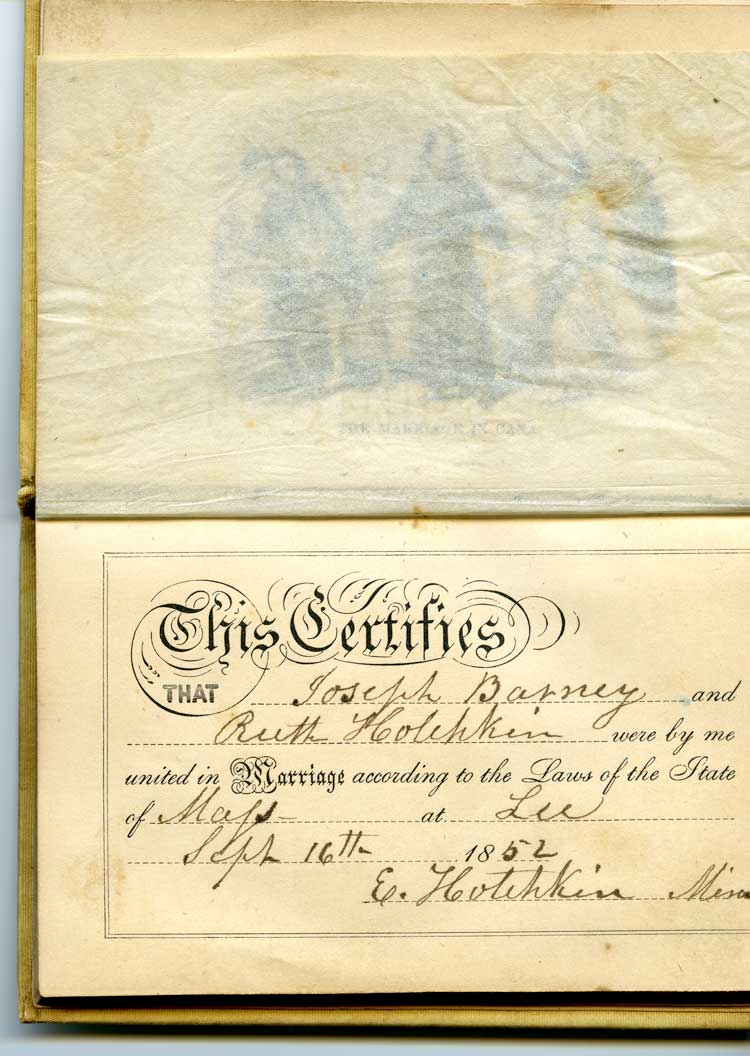 THE MARRIAGE IN CANA
This Certifies
THAT Joseph Barney and
Ruth Hotchkin were by me
united in Marriage according to the Laws of the State
of Mass at Lee
Sept 16th 1852
E. Hotchkin